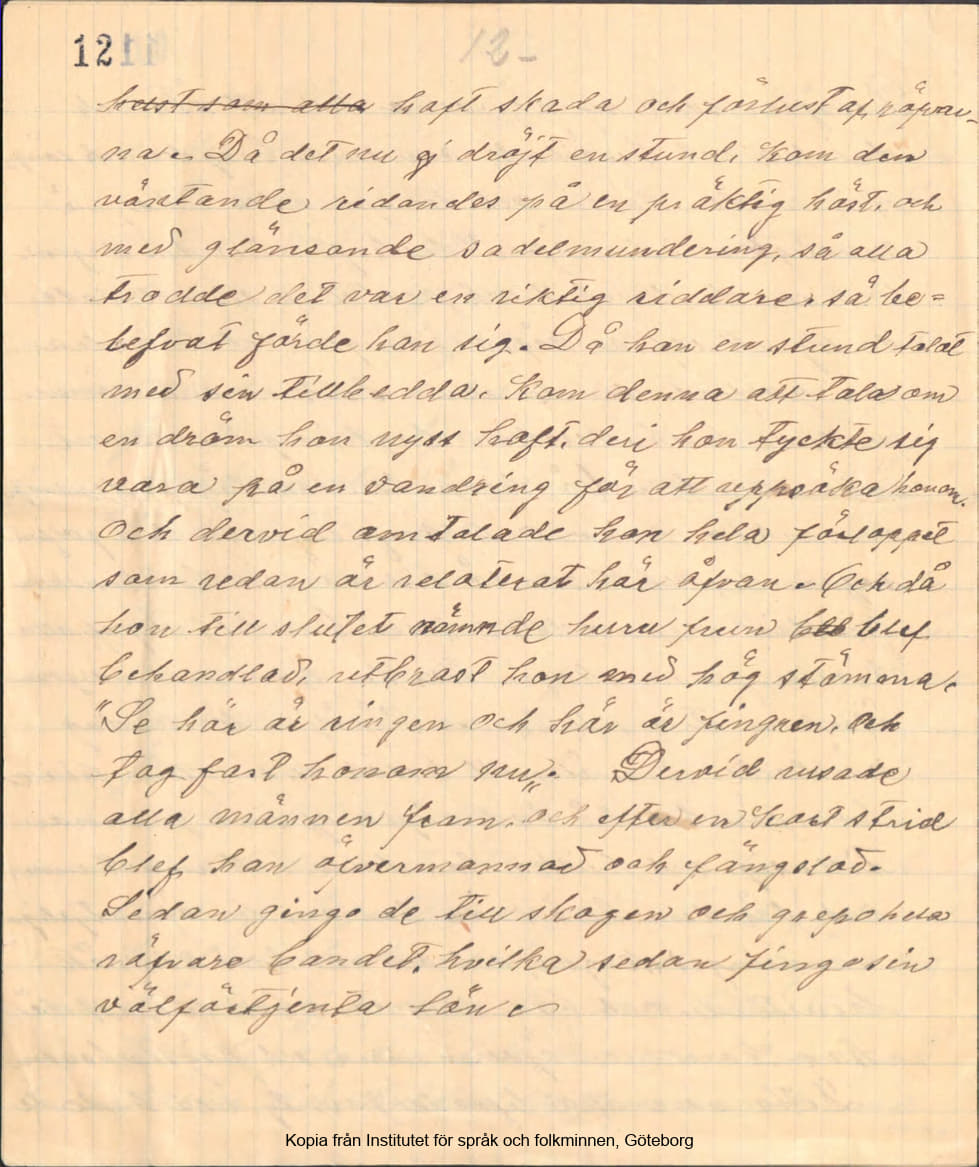 1211 12-
haft som alla haft skada och förlust af röfvar-
na. Då det nu ej dröjt en stund, kom den
väntande ridandes på en präktig häst, och
med glänsande sadelmundering, så alla
trodde det var en riktig riddare, så be=
lefvat förde han sig. Då han en stund talat
med sin tillbedda, kom denna att tala om
en dröm hon nyss haft, deri hon tyckte sig
vara på en vandring för att uppsöka honom.
Och dervid omtalade hon hela förloppet
som redan är relaterat här åfvan. Och då
hon till slutet nämnde huru frun blef
behandlad, utbrast hon med hög stämma,
"Se här är ringen och här är fingren, och
tag fast honom nu„. Dervid rusade
alla männen fram, och efter en kort strid
blef han öfvermannad och fängslad.
Sedan gingo de till skogen och grepo hela
röfvare bandet, hvilka sedan fingo sin
välförtjenta lön.
Kopia från Institutet för språk och folkminnen, Göteborg